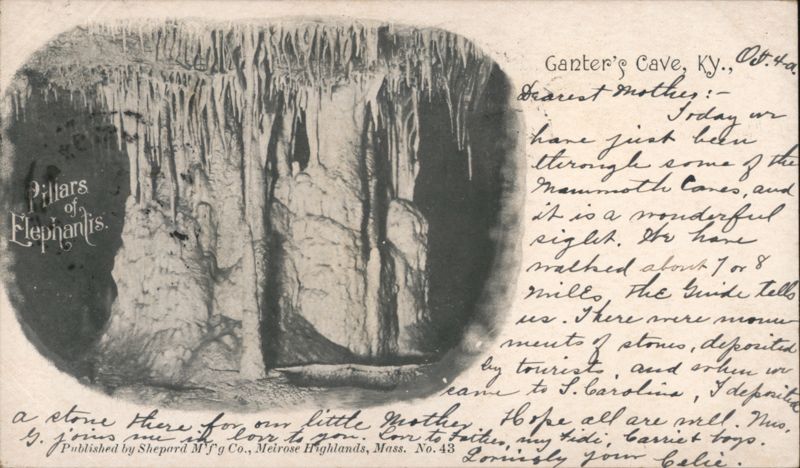 Pillars
of
Elephantis.
Ganter's Cave, Ky., Oct. 4th
Dearest Mother:-
Today we
have just been
through some of the
Mammoth Caves, and
it is a wonderful
sight. We have
walked about 7 or 8
miles, the Guide tells
us. There were monu-
ments of stones, deposited
by tourists, and when we
came to S. Carolina, I deposited
a stone there for our little Mother. Hope all are well. Mrs.
G. joins me in love to you. Love to Father, my Sidi, Carrie & boys.
Published by Shepard M'f'g Co., Melrose Highlands, Mass. No. 43
Lovingly your Celie